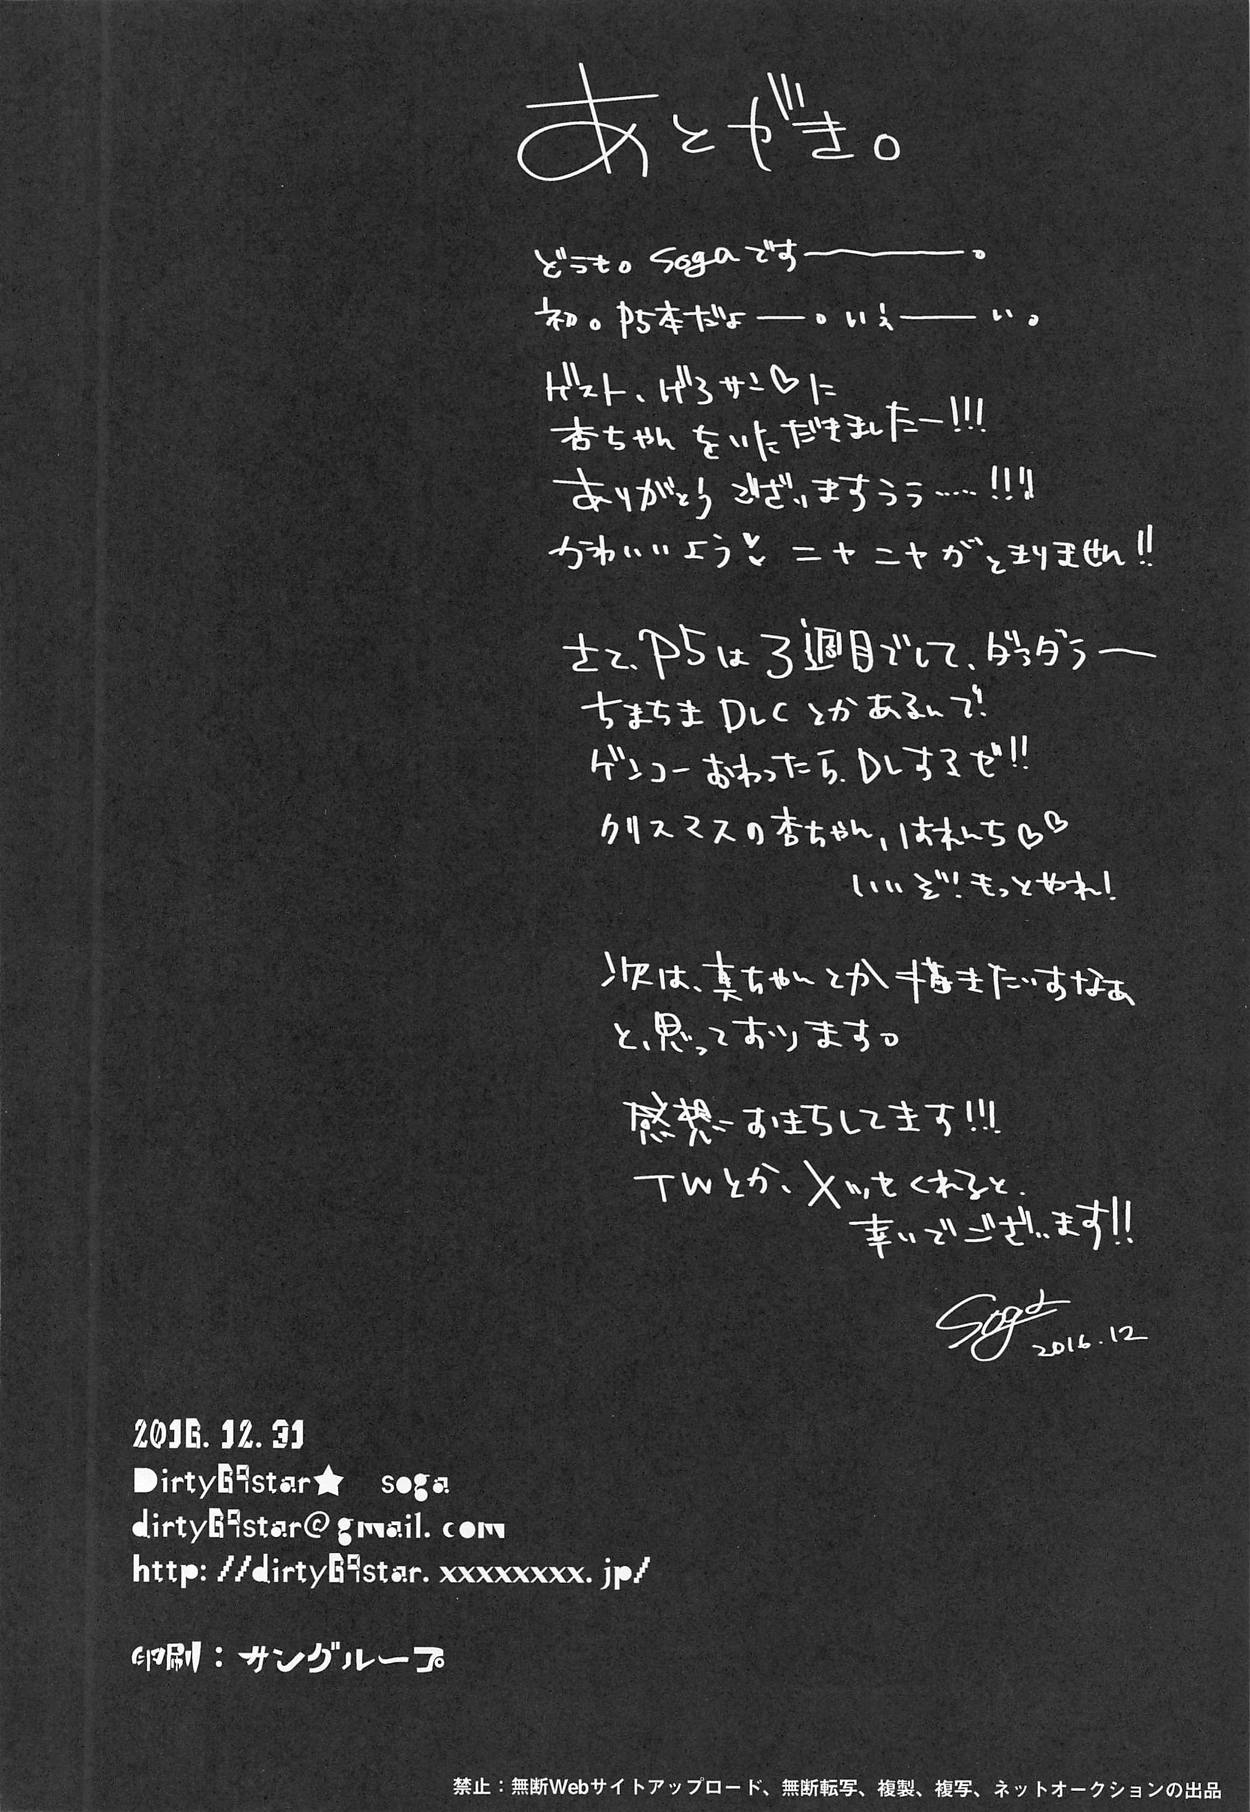 あとがき。
どうも。sogaです―――。
初。P5本だよ―。いぇ――い。
ゲスト、げろサン♡に
杏ちゃんをいただきましたー!!!
ありがとうございますうぅ……!!!!
かわいいよう♥ ニヤニヤがとまりません!!
さて、P5は3週目でして、ダラダラ―
ちまちまDLCとかあるんで!
ゲンコーおわったら、DLするぜ!!
クリスマスの杏ちゃん、はれんち♡♡
いいぞ!もっとやれ!
次は、真ちゃんとか描きたいすなぁ
と、思っております。
感想おまちしてます!!!
TWとか、メッセくれると、
幸いでございます!!
Soga
2016.12
2016.12.31
Dirty69star★ soga
dirty69star@gmail.com
http://dirty69star.xxxxxxxx.jp/
印刷：サングループ
禁止：無断Webサイトアップロード、無断転写、複製、複写、ネットオークションの出品